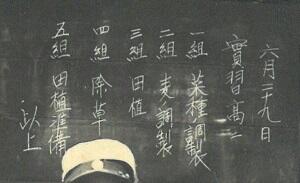 六月二十九日
實習高二
一組 菜種調製
二組 麦ノ調製
三組 田植
四組 除草
五組 田植準備
以上